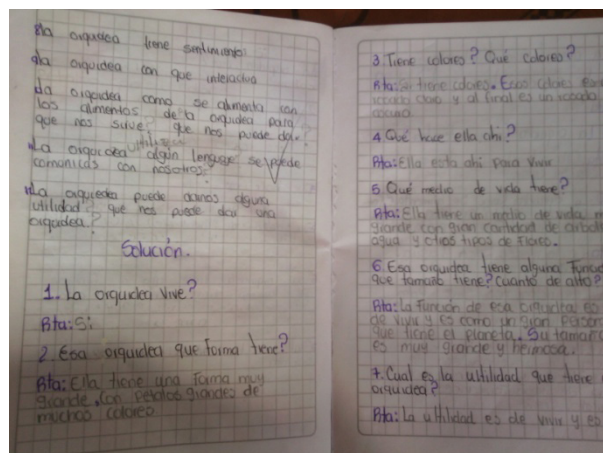 8 la orquidea tiene sentimiento?
9 la orquidea con que interactua
La orquidea como se alimenta con
los alimentos de la orquidea para
que nos sulve? que nos puede dar?
La orquidea utiliza algún lenguaje se puede
comunicas con nosotros?
La orquidea puede darnos alguna
utilidad? que nos puede dar una
orquidea?
Solución.
1. La orquidea vive?
Rta: Si
2. Esa orquidea que forma tiene?
Rta: Ella tiene una forma muy
grande, con petalos grandes de
muchos colores
3. Tiene colores? Qué colores?
Rta: Si tiene colores. Esos colores
rosado claro y al final es un rosado
oscuro
4 Qué hace ella ahi?
Rta: Ella esta ahi para vivir
5. Qué medio de vida tiene?
Rta: Ella tiene un medio de vida
grande con gran cantidad de
agua y otros tipos de
6. Esa orquidea tiene alguna
que tamaño tiene? Cuánto de alto?
Rta: La función de esa orquidea es
de vivir y es como un gran
que tiene el planeta. Su tamaño
es muy grande y hermosa.
7. Cual es la ultilidad que tiene
orquidea?
Rta: La ultilidad es de vivir y es